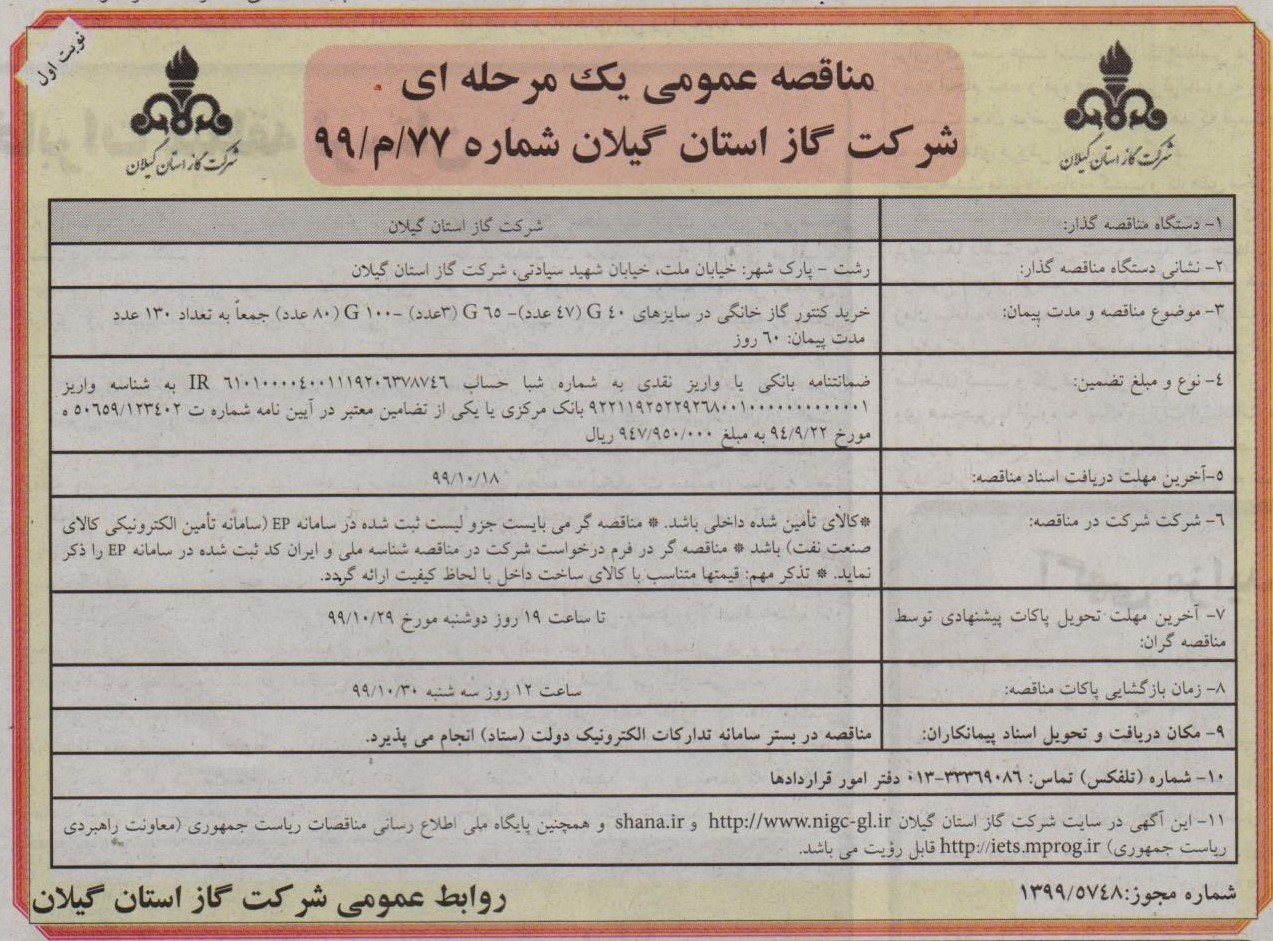 نوبت اول
مناقصه عمومی یک مرحله ای
شرکت گاز استان گیلان شماره ۹۹/م/۷۷
شرکت گاز استان گیلان
شرکت گاز استان گیلان
۱- دستگاه مناقصه گذار: شرکت گاز استان گیلان
۲- نشانی دستگاه مناقصه گذار: رشت - پارک شهر: خیابان ملت، خیابان شهید سیادتی، شرکت گاز استان گیلان
۳- موضوع مناقصه و مدت پیمان: خرید کنتور گاز خانگی در سایزهای G ٤٠ (٤٧ عدد)- G ٦٥ (۳عدد) -G ١٠٠ (۸۰ عدد) جمعاً به تعداد ۱۳۰ عدد
مدت پیمان: ٦٠ روز
٤- نوع و مبلغ تضمین: ضمانتنامه بانکی یا واریز نقدی به شماره شبا حساب IR ٦١٠١٠٠٠٠٤٠٠١١١٩٢٠٦٣٧٨٧٤٦ به شناسه واریز
٩٢٢١١٩٢٥٢٢٩٢٦٨٠٠١٠٠٠٠٠٠٠٠٠٠٠٠١ بانک مرکزی یا یکی از تضامین معتبر در آیین نامه شماره ت ٥٠٦٥٩/١٢٣٤٠٢ ه
مورخ ۹٤/۹/۲۲ به مبلغ ۹٤۷/۹۵۰/۰۰۰ ریال
۵-آخرین مهلت دریافت اسناد مناقصه: ۹۹/۱۰/۱۸
٦- شرکت شرکت در مناقصه: *کالای تأمین شده داخلی باشد. * مناقصه گر می بایست جزو لیست ثبت شده در سامانه EP (سامانه تأمین الکترونیکی کالای
صنعت نفت) باشد * مناقصه گر در فرم درخواست شرکت در مناقصه شناسه ملی و ایران کد ثبت شده در سامانه EP را ذکر
نماید. * تذکر مهم: قیمتها متناسب با کالای ساخت داخل با لحاظ کیفیت ارائه گردد.
۷- آخرین مهلت تحویل پاکات پیشنهادی توسط
مناقصه گران: تا ساعت ۱۹ روز دوشنبه مورخ ۹۹/۱۰/۲۹
۸- زمان بازگشایی پاکات مناقصه: ساعت ۱۲ روز سه شنبه ۹۹/۱۰/۳۰
۹- مکان دریافت و تحویل اسناد پیمانکاران: مناقصه در بستر سامانه تدارکات الکترونیک دولت (ستاد) انجام می پذیرد.
۱۰- شماره (تلفکس) تماس: ۳۳۳٦۹۰۸٦-۰۱۳ دفتر امور قراردادها
۱۱- این آگهی در سایت شرکت گاز استان گیلان http://www.nigc-gl.ir و shana.ir و همچنین پایگاه ملی اطلاع رسانی مناقصات ریاست جمهوری (معاونت راهبردی
ریاست جمهوری) http://iets.mprog.ir قابل رؤیت می باشد.
شماره مجوز:۱۳۹۹/۵۷٤۸
روابط عمومی شرکت گاز استان گیلان